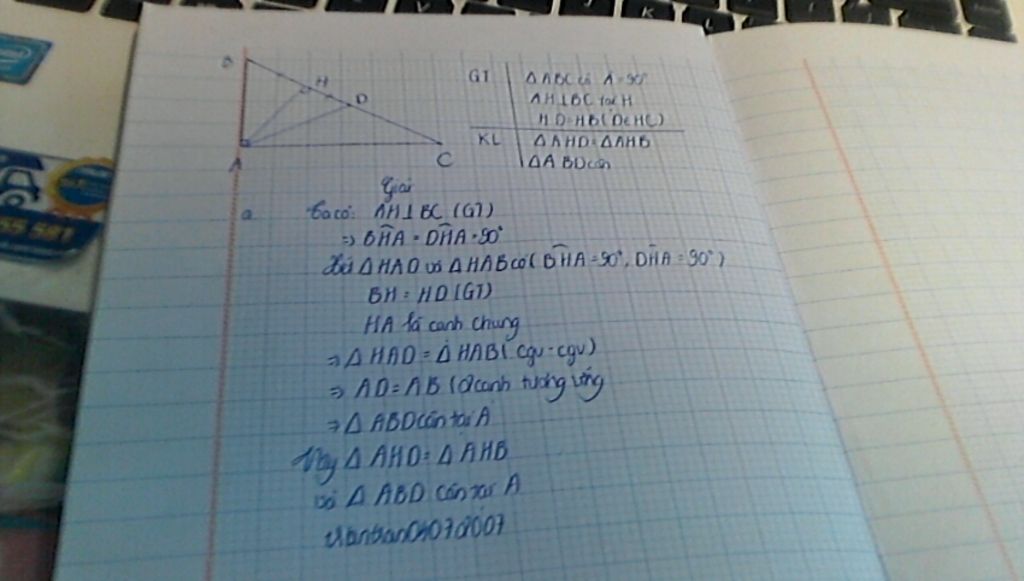 B
H
D
A
C
GT
ΔABC có A = 90°
AH⊥BC tại H
HD = HB (D∈HC)
KL
ΔAHD = ΔAHB
ΔABD cân
Giải
a
Ta có: AH⊥BC (GT)
⇒ BHA = DHA = 90°
Xét ΔHAD và ΔHAB có (BHA = 90°, DHA = 90°)
BH = HD (GT)
HA là cạnh chung
⇒ ΔHAD = ΔHAB (cgv - cgv)
⇒ AD = AB (2 cạnh tương ứng
⇒ ΔABD cân tại A
Vậy ΔAHD = ΔAHB
và ΔABD cân tại A